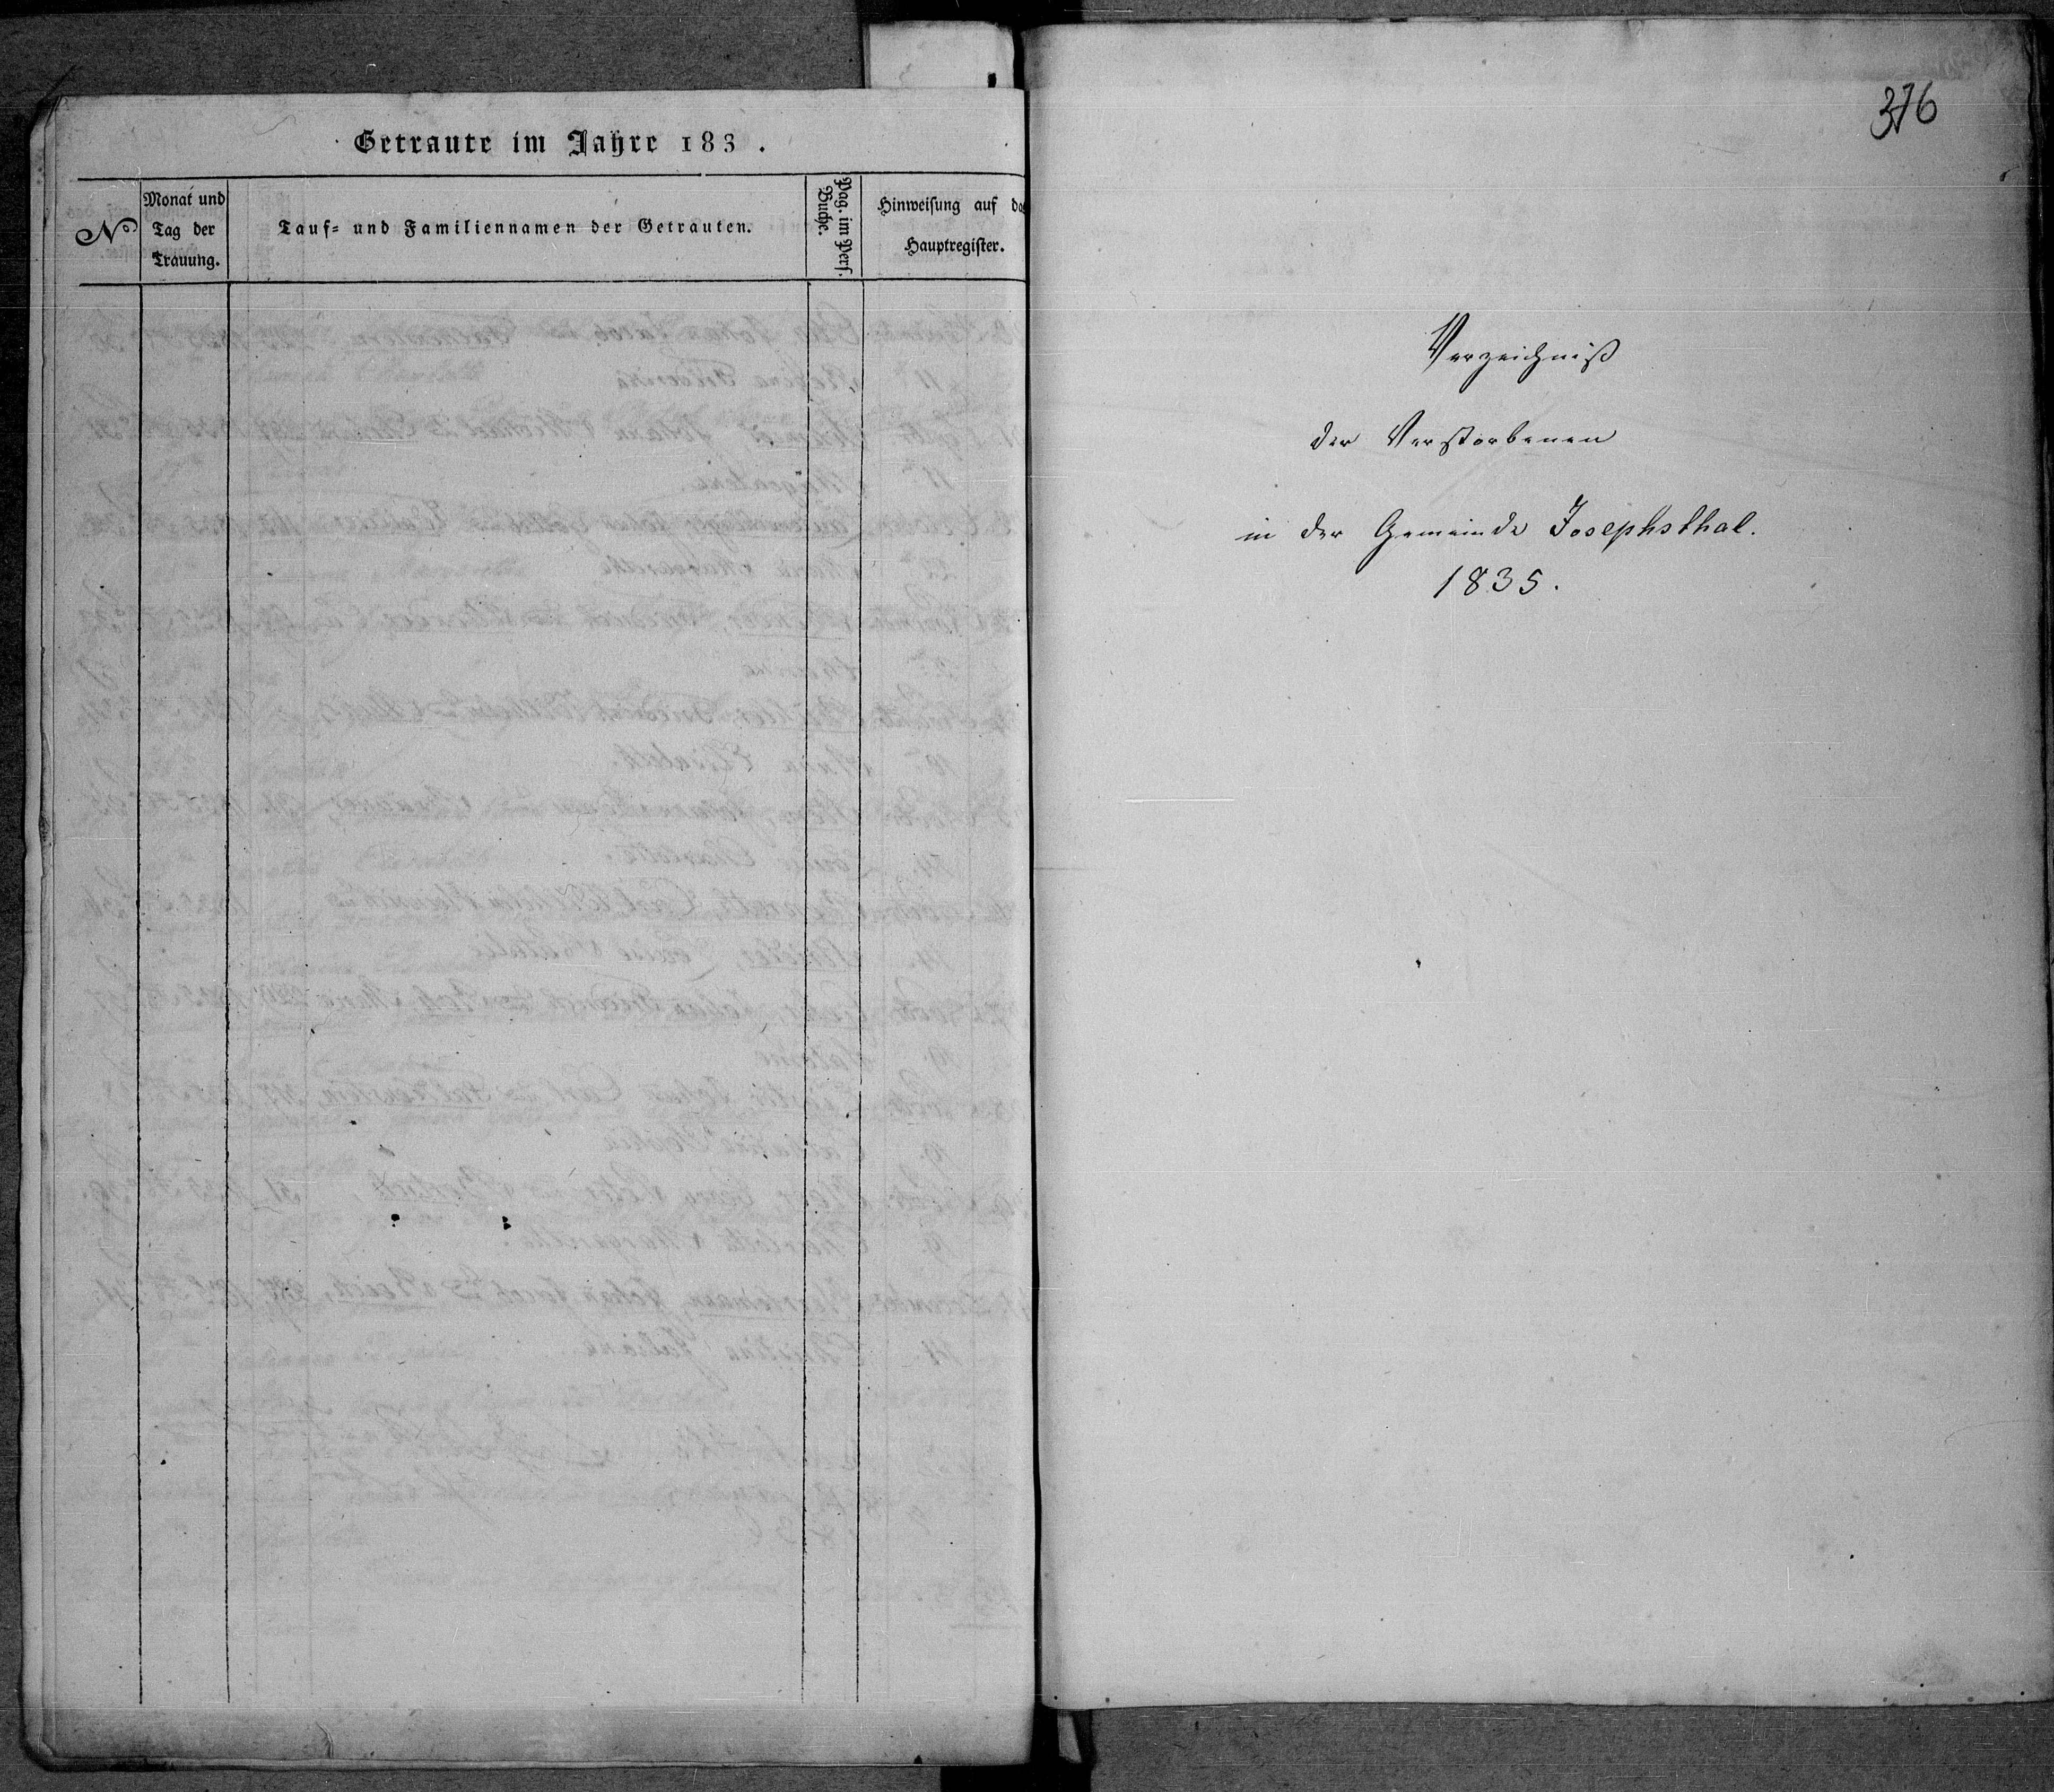 Getraute im Jahre 183 .
No
Monat und
Tag der
Trauung.
Tauf= und Familiennamen der Getrauten.
Pag. im Pers.
Buche.
Hinweisung auf das
Hauptregister.
376
Verzeichniß
der Verstorbenen
in der Gemeinde Josephsthal.
1835.